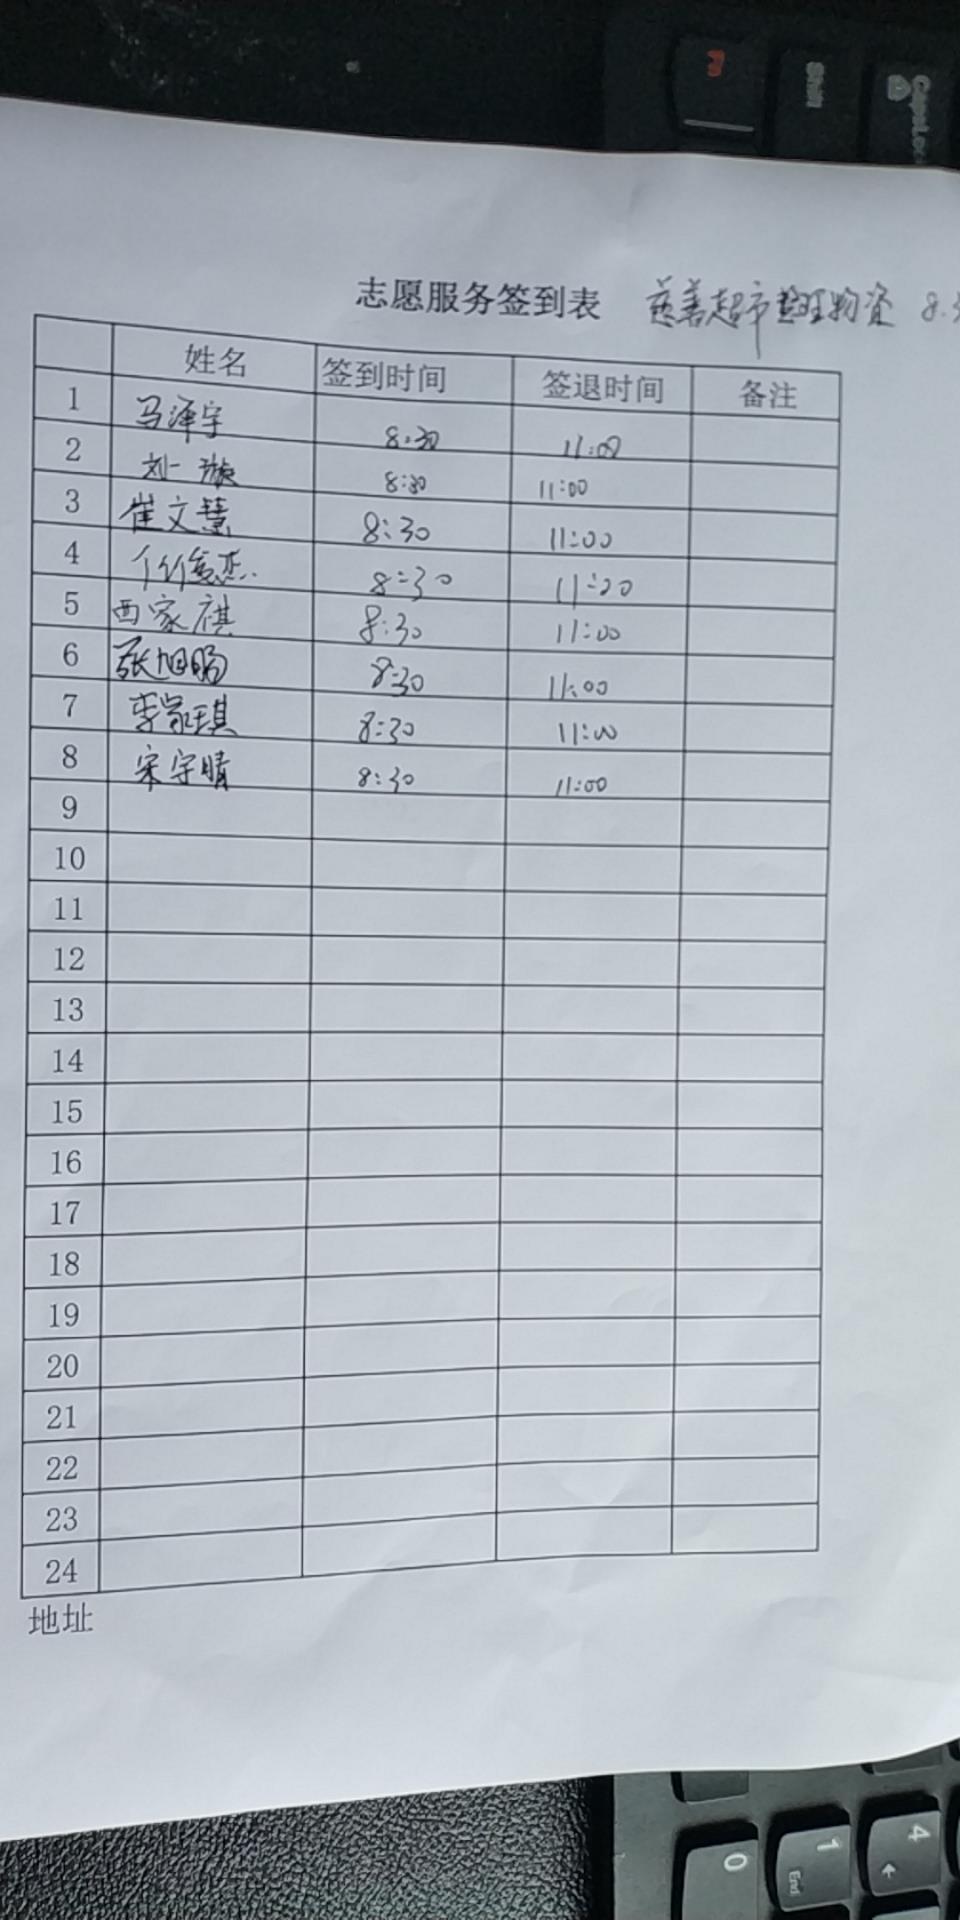 Fn Shift CapsLoc
志愿服务签到表 慈善超市整理物资 8.3
姓名 签到时间 签退时间 备注
1 马泽宇 8:30 11:00
2 刘一璇 8:30 11:00
3 崔文慧 8:30 11:00
4 8:30 11:20
5 西家祺 8:30 11:00
6 张旭旸 8:30 11:00
7 李家琪 8:30 11:00
8 宋宇晴 8:30 11:00
9
10
11
12
13
14
15
16
17
18
19
20
21
22
23
24
地址
0 1 End 4 ←